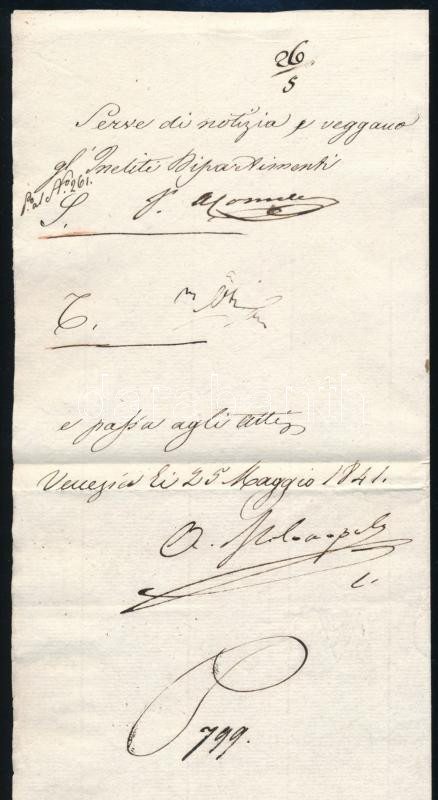 26
5
Serve di notizia e veggano
gl' Incliti Dipartimenti
N° 261.
S.
T.
e passa agli atti
Venezia li 25 Maggio 1841.
799.